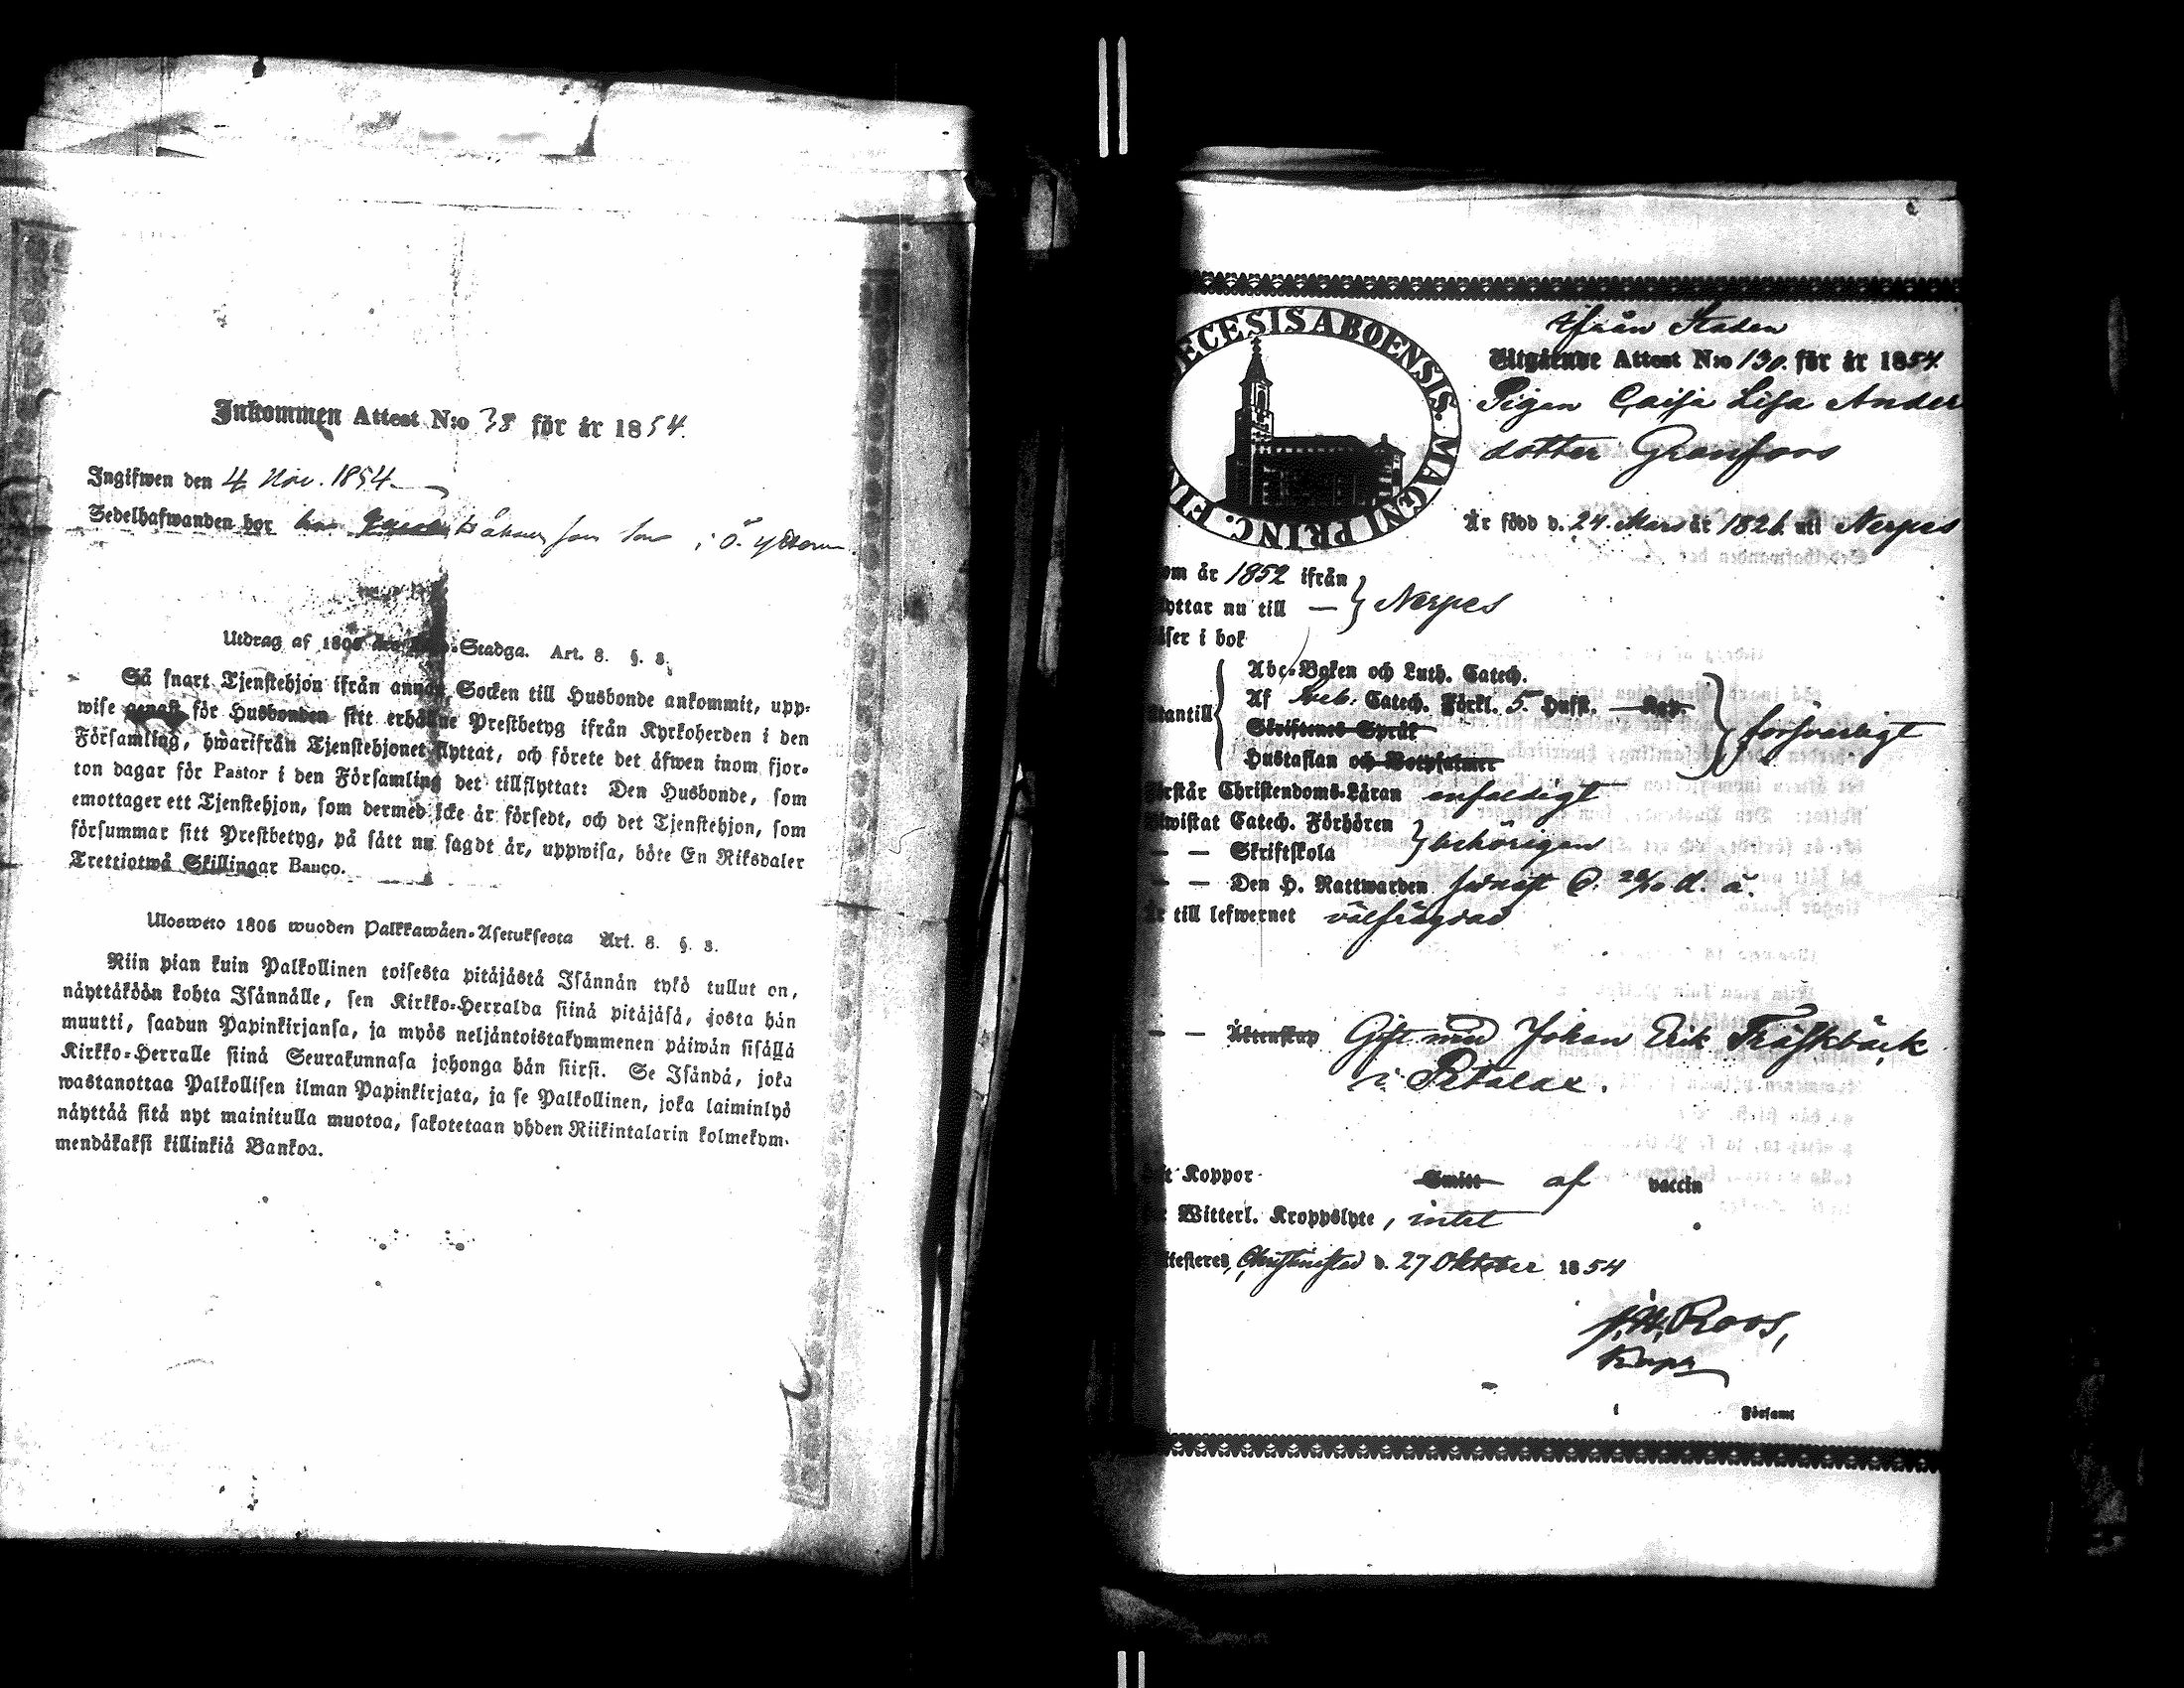 Inkommen Attest N:o 38 för år 1854.
Ingifwen den 4 Nov. 1854.
Sedelhafwanden bor hos i Ö. Yttermark
Utdrag af 1805 års Stadga. Art. 8. §. 8.
Så snart Tjenstehjon ifrån annan Socken till Husbonde ankommit, upp-
wise genast för Husbonden sitt erhållne Prestbetyg ifrån Kyrkoherden i den
Församling, hwarifrån Tjenstehjonet flyttat, och förete det äfwen inom fjor-
ton dagar för Pastor i den Församling det tillflyttat: Den Husbonde, som
emottager ett Tjenstehjon, som dermed icke är försedt, och det Tjenstehjon, som
försummar sitt Prestbetyg, på sätt nu sagdt är, uppwisa, böte En Riksdaler
Trettiotwå Skillingar Banco.
Ulosweto 1805 wuoden Palkkawäen-Asetuksesta Art. 8. §. 8.
Niin pian kuin Palkollinen toisesta pitäjästä Isännän tykö tullut on,
näyttäköön kohta Isännälle, sen Kirkko-Herralda siinä pitäjäsä, josta hän
muutti, saadun Papinkirjansa, ja myös neljäntoistakymmenen päiwän sisällä
Kirkko-Herralle siinä Seurakunnasa johonga hän siirsi. Se Isändä, joka
wastanottaa Palkollisen ilman Papinkirjata, ja se Palkollinen, joka laiminlyö
näyttää sitä nyt mainitulla muotoa, sakotetaan yhden Riikintalarin kolmekym-
mendäkaksi killinkiä Bankoa.
DECESIS ABOENSIS. MAGNI PRINC. FIN
Ifrån Staden
Utgående Attest N:o 130. för år 1854.
Pigan Caisa Lisa Anders
dotter Granfors
Är född d. 24 Mars år 1826 uti Nerpes
om år 1852 ifrån
yttar nu till — } Nerpes
äser i bok
Abc-Boken och Luth. Catech.
Af Sveb. Catech. Förkl. 5. Hufst. Kap.
utantill Skriftenes Språk försvarligt
Hustaflan och Botpsalmer
örstår Christendoms-Läran enfaldigt
Bewistat Catech. Förhören
— — Skriftskola } behörigen
— — Den H. Nattwarden sednast d. 28/10 d. å.
Är till lefwernet välfrägdad
— — Äktenskap Gift med Johan Erik Träskbäck
i Petalax.
t Koppor Smitt af vaccin
Witterl. Kroppslyte, intet
ttesteres, Christinestad d. 27 Oktober 1854
J. W. Roos,
i Församl